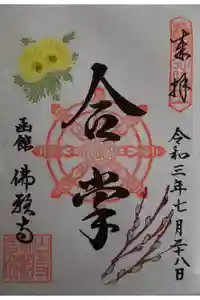 来拝
令和三年七月廿八日
合掌
函館 佛願寺